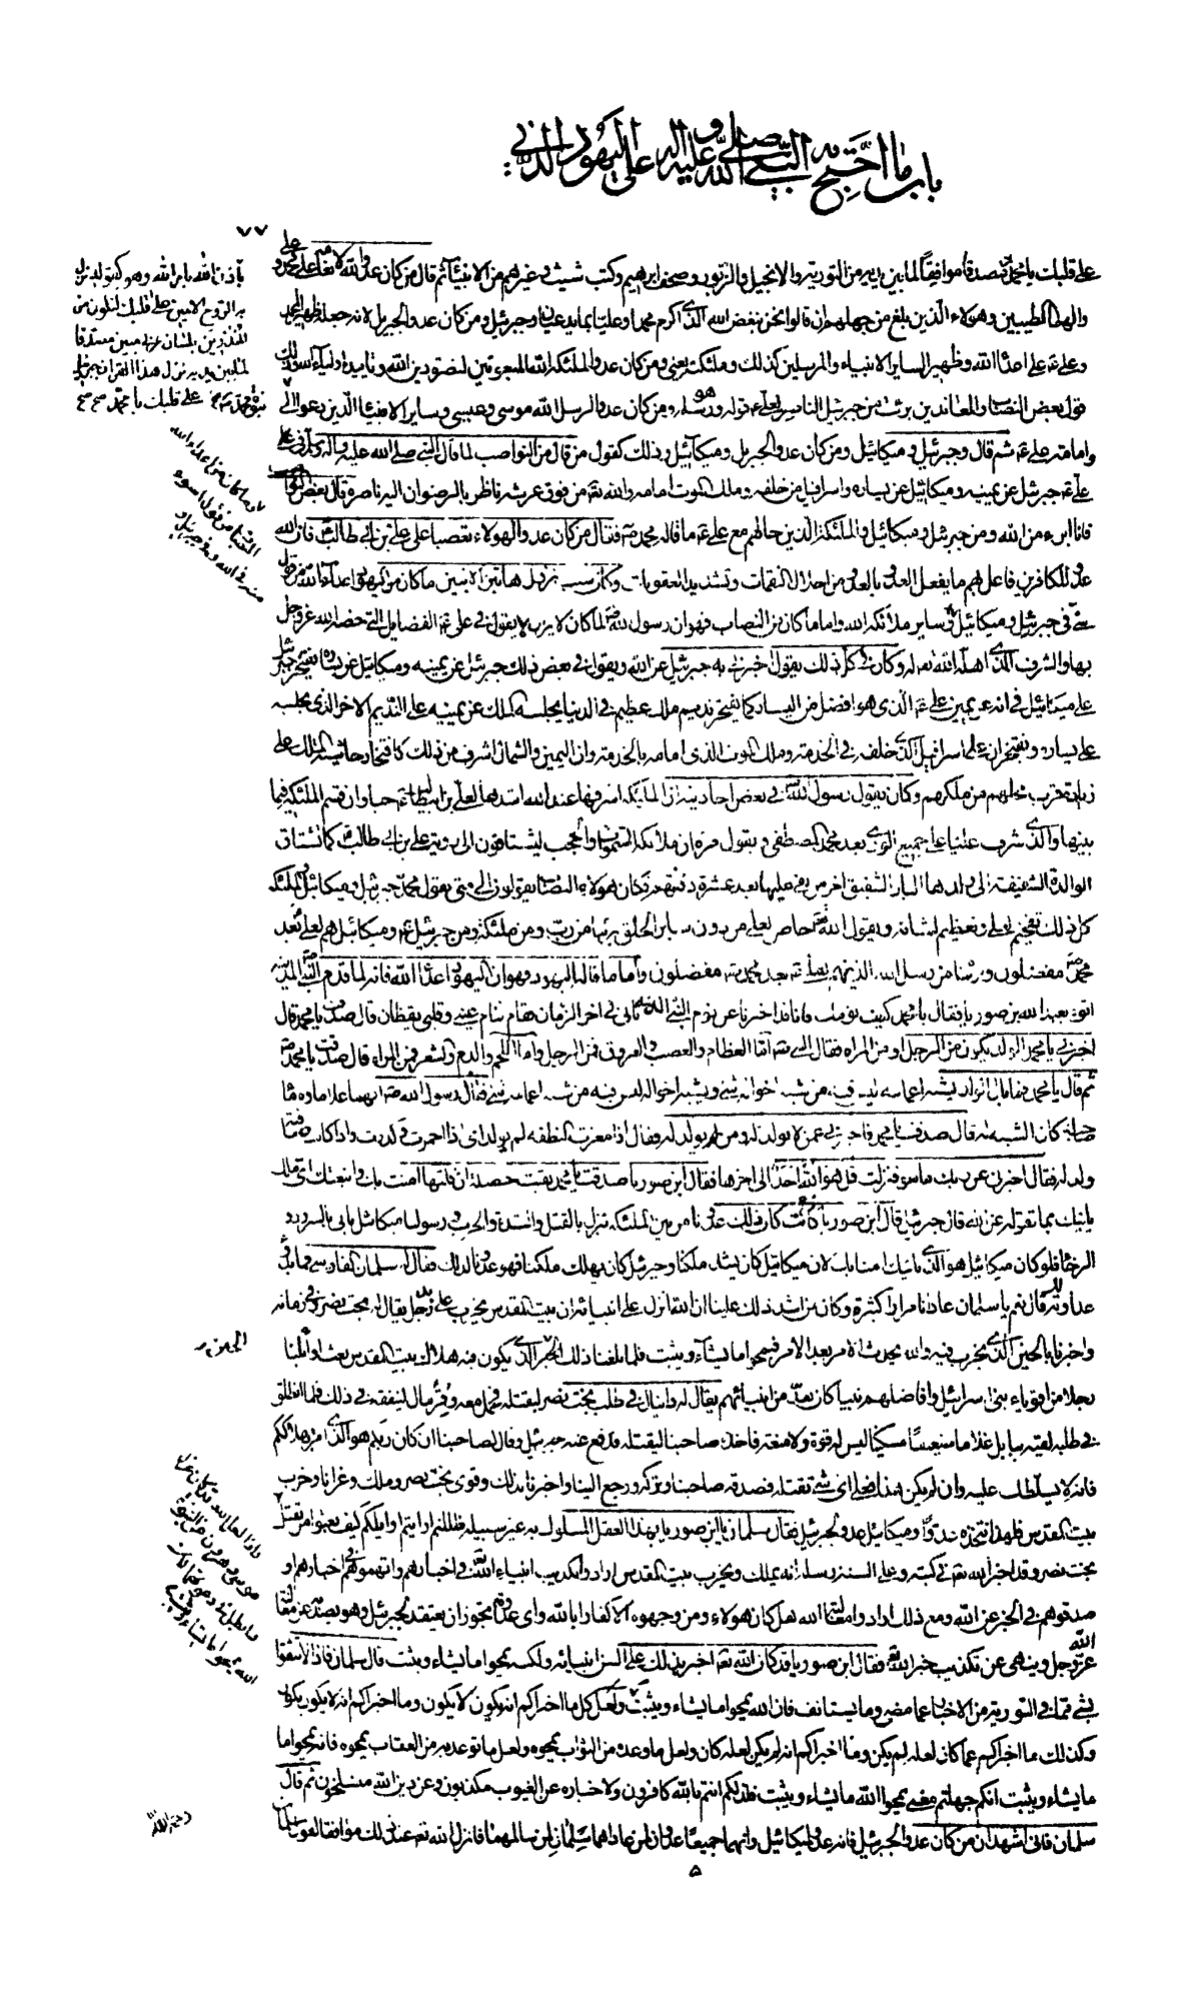 باب ما احتج به النبي صلى الله عليه وآله على اليهود الذي
٧٧
على قلبك يا محمد مصدقا موافقا لما بين يديه من التورية والانجيل والزبور وصحف ابراهيم وكتب شيث وغيرهم من الانبياء ثم قال من كان عدوا لله لانعامه على محمد وعلي
والهما الطيبين وهؤلاء الذين بلغ من جهلهم ان قالوا نحن نبغض الله الذي اكرم محمدا وعليا بما يدعيان وجبرئيل ومن كان عدوا لجبريل لانه جعله ظهيرا لمحمد
وعلي ع على اعداء الله وظهيرا لساير الانبياء والمرسلين كذلك وملئكته يعني ومن كان عدوا لملئكة الله المبعوثين لنصرة دين الله وتاييد اولياء الله وذلك
قول بعض النصاب والمعاندين برئت من جبرئيل الناصر لعلي ع وهو قوله ورسله ومن كان عدوا لرسل الله موسى وعيسى وساير الانبياء الذين دعوا الى
وامامة علي ع ثم قال وجبرئيل وميكائيل ومن كان عدوا لجبريل وميكائيل وذلك كقول من قال من النواصب لما قال النبي صلى الله عليه وآله في علي
علي ع جبرئيل عن يمينه وميكائيل عن يساره واسرافيل من خلفه وملك الموت امامه والله تع من فوق عرشه ناظر بالرضوان اليه ناصره قال بعض النواصب
فانا ابرء من الله ومن جبرئيل وميكائيل والملئكة الذين حالهم مع علي ع ما قاله محمد ص فقال من كان عدوا لهؤلاء تعصبا على علي بن ابي طالب ع فان الله
عدو للكافرين فاعل بهم ما يفعل العدو بالعدو من احلال النقمات وتشديد العقوبات وكان سبب نزول هاتين الايتين ما كان من اليهود اعداء الله من قول
سئ في جبرئيل وميكائيل وساير ملائكة الله واما ما كان من النصاب فهو ان رسول الله ص لما كان لا يزال يقول في علي ع الفضايل التي خصه الله عز وجل
بها والشرف الذي اهله الله تعالى له وكان في كل ذلك يقول اخبرني به جبرئيل عن الله ويقول في بعض ذلك جبرئيل عن يمينه وميكائيل عن يساره يفتخر جبرئيل
على ميكائيل في انه عن يمين علي ع الذي هو افضل من اليسار كما يفتخر نديم ملك عظيم في الدنيا يجلسه الملك عن يمينه على النديم الاخر الذي يجلسه
على يساره ويفتخران على اسرافيل الذي خلفه في الخدمة وملك الموت الذي امامه بالخدمة وان اليمين والشمال اشرف من ذلك كافتخار حاشية الملك على
زيادة قرب محلهم من ملكهم وكان يقول رسول الله ص في بعض احاديثه ان الملائكة اشرفها عند الله اشدها لعلي بن ابي طالب ع حبا وان قسم الملئكة فيما
بينها والذي شرف عليا على جميع الورى بعد محمد المصطفى ويقول مرة ان ملائكة السموات والحجب ليشتاقون الى رؤية علي بن ابي طالب ع كما تشتاق
الوالدة الشفيقة الى ولدها البار الشفيق اخر من بقي عليها بعد عشرة دفنتهم فكان هؤلاء النصاب يقولون الى متى يقول محمد ص جبرئيل وميكائيل والملئكة
كل ذلك تفخيم لعلي وتعظيم لشانه ويقول الله تع خاص لعلي من دون ساير الخلق برئنا من رب ومن ملئكة ومن جبرئيل ع وميكائيل هم لعلي بعد
محمد ص مفضلون وبرئنا من رسل الله الذينهم لعلي ع بعد محمد ص مفضلون واما ما قاله اليهود فهو ان اليهود اعداء الله فانه لما قدم النبي ص المدينة
اتوه بعبد الله بن صوريا فقال يا محمد كيف نومك فانا قد اخبرنا عن نوم النبي الذي ياتي في اخر الزمان فقال تنام عيني وقلبي يقظان قال صدقت يا محمد قال
اخبرني يا محمد الولد يكون من الرجل او من المراة فقال النبي ص اما العظام والعصب والعروق فمن الرجل واما اللحم والدم والشعر فمن المراة قال صدقت يا محمد
ثم قال يا محمد فما بال الولد يشبه اعمامه ليس فيه من شبه اخواله شئ ويشبه اخواله ليس فيه من شبه اعمامه شئ فقال رسول الله ص ايهما علا ماءه ماء
صاحبه كان الشبه له قال صدقت يا محمد فاخبرني عمن لا يولد له ومن يولد له فقال اذا مغرت النطفة لم يولد اي اذا احمرت وكدرت واذا كانت صافية
ولد له فقال اخبرني عن ربك ما هو فنزلت قل هو الله احد الى اخرها فقال ابن صوريا صدقت يا محمد بقيت خصلة ان قلتها امنت بك واتبعتك اي ملك
ياتيك بما تقوله عن الله قال جبرئيل قال ابن صوريا ذلك عدونا من بين الملئكة ينزل بالقتل والشدة والحرب ورسولنا ميكائيل ياتي بالسرور و
الرخاء فلو كان ميكائيل هو الذي ياتيك امنا بك لان ميكائيل كان يشد ملكنا وجبرئيل كان يهلك ملكنا فهو عدونا لذلك فقال له سلمان الفارسي فما بدؤ
عداوته لكم قال نعم يا سلمان عادانا مرارا كثيرة وكان من اشد ذلك علينا ان الله انزل على انبيائه ان بيت المقدس يخرب على يد رجل يقال له بخت نصر وفي زمانه
واخبرنا بالحين الذي يخرب فيه والله يحدث الامر بعد الامر فيمحوا ما يشاء ويثبت فلما بلغنا ذلك الخبر الذي يكون فيه هلاك بيت المقدس بعث اوائلنا
رجلا من اقوياء بني اسرائيل وافاضلهم نبيا كان يعد من انبيائهم يقال له دانيال في طلب بخت نصر ليقتله فحمل معه وقر مال لينفقه في ذلك فلما انطلق
في طلبه لقيه ببابل غلاما ضعيفا مسكينا ليس له قوة ولا منعة فاخذه صاحبنا ليقتله فدفع عنه جبرئيل وقال لصاحبنا ان كان ربكم هو الذي امر بهلاككم
فانه لا يسلطك عليه وان لم يكن هذا فعلى اي شئ تقتله فصدقه صاحبنا وتركه ورجع الينا واخبرنا بذلك وقوي بخت نصر وملك وغزانا وخرب
بيت المقدس فلهذا نتخذه عدوا وميكائيل عدو لجبرئيل فقال سلمان يا بن صوريا بهذا العقل المسلوك به غير سبيله ضللتم ارايتم اوائلكم كيف بعثوا من يقتل
بخت نصر وقد اخبر الله تع في كتبه وعلى السنة رسله انه يملك ويخرب بيت المقدس ارادوا تكذيب انبياء الله تع في اخبارهم واتهموهم في اخبارهم او
صدقوهم في الخبر عن الله ومع ذلك ارادوا مغالبة الله هل كان هؤلاء ومن وجهوه الا كفارا بالله واي عداوة يجوز ان يعتقد لجبرئيل وهو يصد عن مغالبة الله
عز وجل وينهى عن تكذيب خبر الله تع فقال ابن صوريا قد كان الله تع اخبر بذلك على السن انبيائه ولكنه يمحوا ما يشاء ويثبت قال سلمان فاذا لا تتيقنوا
بشئ مما في التورية من الاخبار عما مضى وما يستانف فان الله يمحوا ما يشاء ويثبت ولعل كل ما اخبراكم انه يكون لا يكون وما اخبراكم انه لا يكون يكون
وكذلك ما اخبراكم عما كان لعله لم يكن وما اخبراكم انه لم يكن لعله كان ولعل ما وعده من الثواب يمحوه ولعل ما توعد به من العقاب يمحوه فانه يمحوا ما
ما يشاء ويثبت انكم جهلتم معنى يمحوا الله ما يشاء ويثبت فلذلكم انتم بالله كافرون ولاخباره عن الغيوب مكذبون وعن دين الله منسلخون ثم قال
سلمان فاني اشهد ان من كان عدوا لجبرئيل فانه عدو لميكائيل وانهما جميعا عدوان لمن عاداهما سلمان لمن سالمهما فانزل الله تع عند ذلك موافقا لقول سلمان
باذن الله بامر الله وهو كقوله نزل
به الروح الامين على قلبك لتكون من
المنذرين بلسان عربي مبين مصدقا
لما بين يديه نزل هذا القران جبرئيل
على قلبك يا محمد صح صح